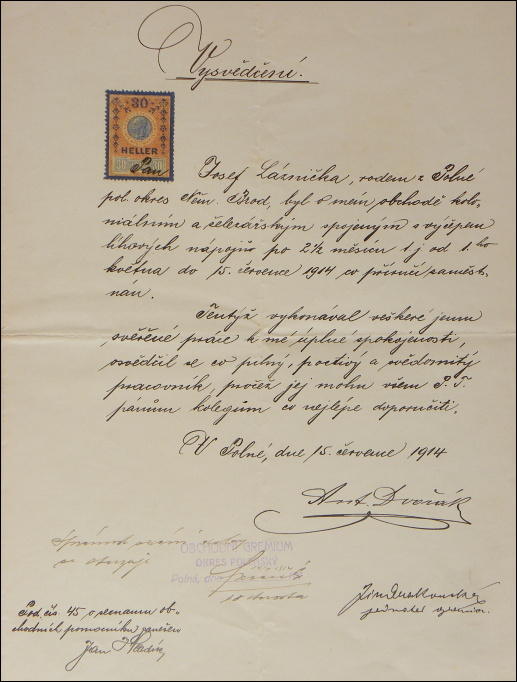 Vysvědčení.
30
HELLER
30 30
Pan Josef Láznička, rodem z Polné
pol. okres Něm. Brod, byl v mém obchodě kolo-
niálním a železářským spojeným s výčepem
lihových nápojův po 2½ měsíců t.j od 1.ho
května do 15. července 1914 co příručí zaměst-
nán.
Tentýž vykonával veškeré jemu
svěřené práce k mé úplné spokojenosti,
osvědčil se co pilný, poctivý a svědomitý
pracovník, pročež jej mohu všem P. T.
pánům kolegům co nejlépe doporučiti.
V Polné, dne 15. července 1914
Ant. Dvořák
OBCHODNÍ GREMIUM
OKRES POLENSKÝ
Polná, dne
starosta
jednatel gremia.
Pod čís. 45, v seznamu ob-
chodních pomocníků zanešen
Jan Hladík